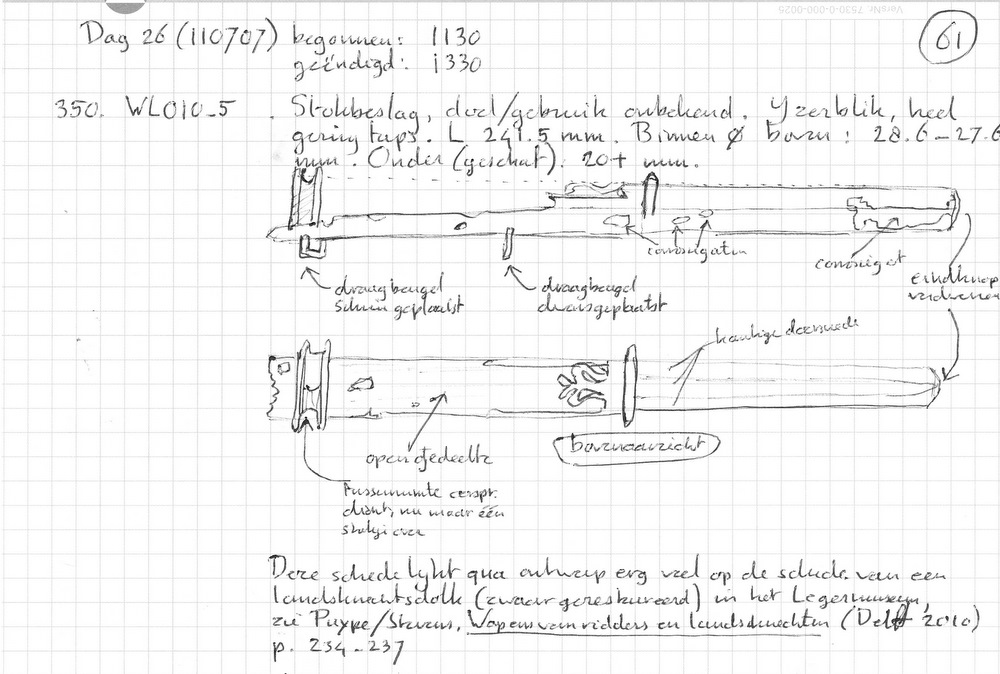 VersNr. 7530-0-000-0025
61
Dag 26 (110707) begonnen: 1130
geëindigd: 1330
350. WL010-5. Stokbeslag, doel/gebruik onbekend. Yzerblik, heel
gering taps. L 241.5 mm. Binnen Ø boven: 28.6-27.6
mm. Onder (geschat): 20+ mm.
corrosiegaten
corrosiegat
eindknop
verdwenen
draagbeugel
schuin geplaatst
draagbeugel
dwarsgeplaatst
hoekige doorsnede
open gedeelte
bovenaanzicht
Tussenruimte oorspr.
dicht, nu maar één
stukje over
Deze schede lykt qua ontwerp erg veel op de schede van een
landsknechtsdolk (zwaar gerestaureerd) in het Legermuseum,
zie Puype/Stevens, Wapens van ridders en landsknechten (Delft 2010)
p. 234-237